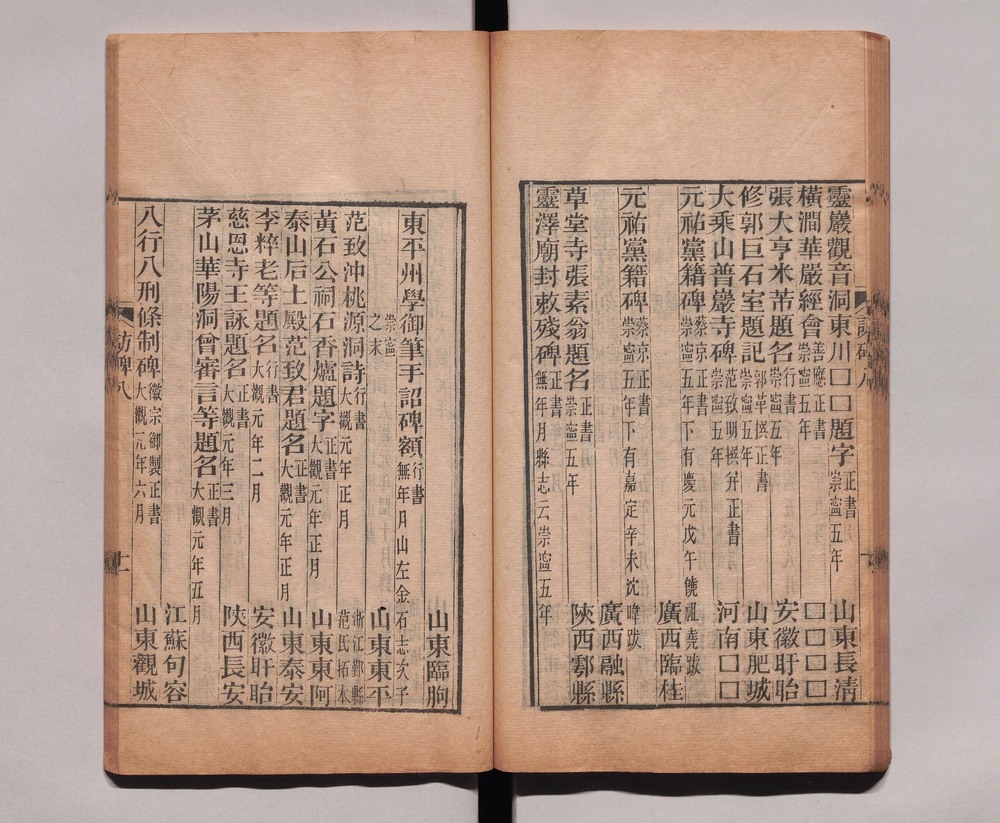 靈巖觀音洞東川□□題字 正書 崇寧五年 山東長清
橫澗華嚴經會 善應正書 崇寧五年 □□□□
張大亨米芾題名 行書 崇寧五年 安徽盱眙
修郭巨石室題記 郭革撰正書 崇寧五年 山東肥城
大乘山普巖寺碑 范致明撰幷正書 崇寧五年 河南□□
元祐黨籍碑 蔡京正書 崇寧五年下有慶元戊午饒祖堯跋
廣西臨桂
元祐黨籍碑 蔡京正書 崇寧五年下有嘉定辛未沈暐跋
廣西融縣
草堂寺張素翁題名 正書 崇寧五年 陝西鄠縣
靈澤廟封敕殘碑 正書 無年月縣志云崇寧五年
山東臨朐
東平州學御筆手詔碑額 行書 無年月山左金石志次于
崇寧之末 山東東平
范致沖桃源洞詩 行書 大觀元年正月 浙江鄞縣范氏拓本
黃石公祠石香爐題字 正書 大觀元年正月 山東東阿
泰山后土殿范致君題名 正書 大觀元年正月 山東泰安
李粹老等題名 行書 大觀元年二月 安徽盱眙
慈恩寺王詠題名 正書 大觀元年三月 陝西長安
茅山華陽洞曾審言等題名 正書 大觀元年五月
江蘇句容
八行八刑條制碑 徽宗御製正書 大觀元年六月 山東觀城
訪碑八 十一